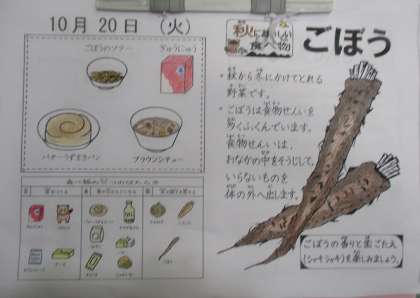 10月20日（火）
ごぼうのソテー
ぎゅうにゅう
バターうずまきパン
ブラウンシチュー
秋においしい
食べ物
ごぼう
・秋から冬にかけてとれる
野菜です。
・ごぼうは食物せんいを
多くふくんでいます。
食物せんいは、
おなかの中をそうじして、
いらないものを
体の外へ出します。
ごぼうの香りと歯ごたえ
(シャキシャキ)を楽しみましょう。